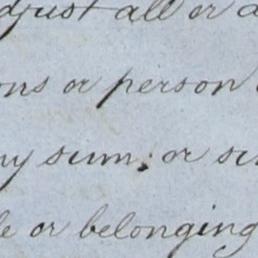 adjust all or a
ons or person
ny sum, or su
le or belonging